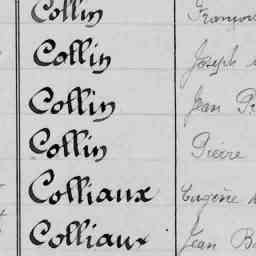 Collin
Collin Joseph
Collin Jean
Collin Pierre
Colliaux Eugène
Colliaux Jean